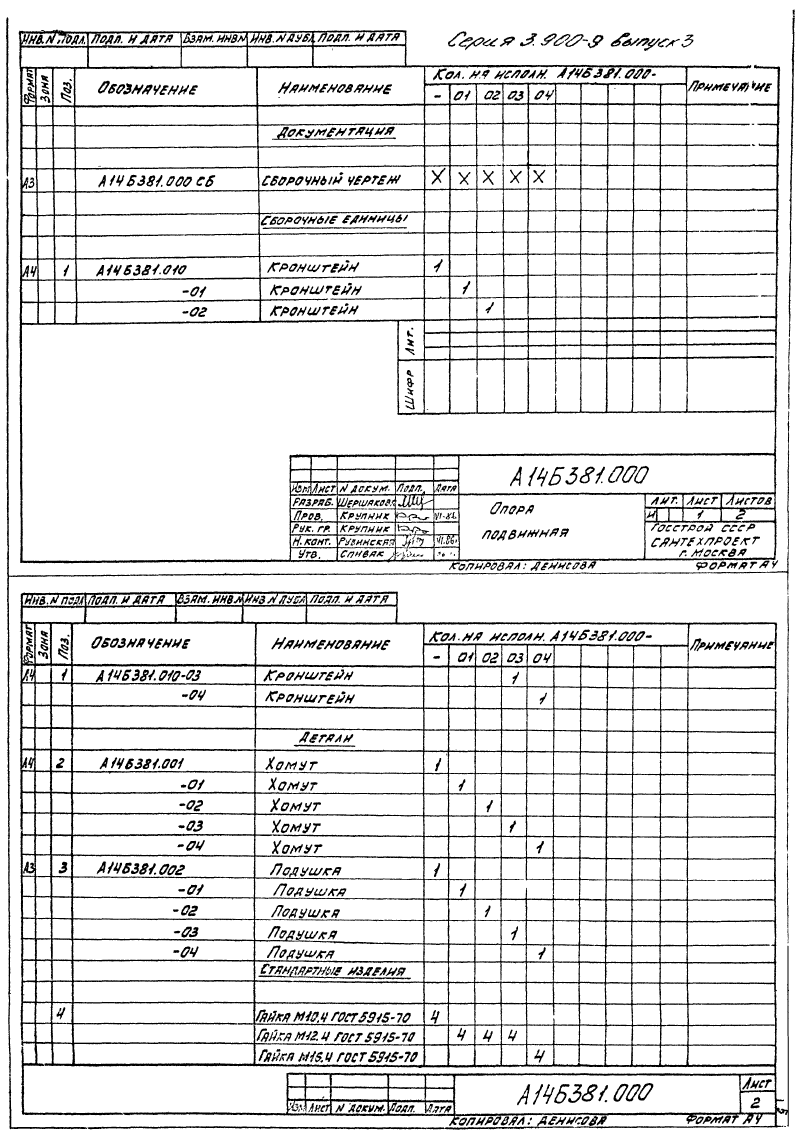 Серия 3.900-9 выпуск 3
Инв. N подл. Подп. и дата Взам. инв. N Инв. N дубл. Подп. и дата
Формат Зона Поз. Обозначение Наименование Кол. на исполн. А14Б381.000- Примечание
- 01 02 03 04
Документация
А3 А14Б381.000 СБ Сборочный чертеж X X X X X
Сборочные единицы
А4 1 А14Б381.010 Кронштейн 1
-01 Кронштейн 1
-02 Кронштейн 1
Лит.
Шифр
А14Б381.000
Изм Лист N докум. Подп. Дата
Разраб.
Пров. Крупник
Рук. гр. Крупник
Н. конт. Рубинская
Утв. Спивак
Опора
подвижная
Лит. Лист Листов
И 1 2
Госстрой СССР
Сантехпроект
г. Москва
Копировал: Денисова Формат А4
Инв. N подл Подп. и дата Взам. инв. N Инв. N дубл Подп. и дата
Формат Зона Поз. Обозначение Наименование Кол. на исполн. А14Б381.000- Примечание
- 01 02 03 04
А4 1 А14Б381.010-03 Кронштейн 1
-04 Кронштейн 1
Детали
А4 2 А14Б381.001 Хомут 1
-01 Хомут 1
-02 Хомут 1
-03 Хомут 1
-04 Хомут 1
А3 3 А14Б381.002 Подушка 1
-01 Подушка 1
-02 Подушка 1
-03 Подушка 1
-04 Подушка 1
Стандартные изделия
4 Гайка М10.4 ГОСТ 5915-70 4
Гайка М12.4 ГОСТ 5915-70 4 4 4
Гайка М16.4 ГОСТ 5915-70 4
Изм Лист N докум. Подп. Дата
А14Б381.000
Лист
2
Копировал: Денисова Формат А4